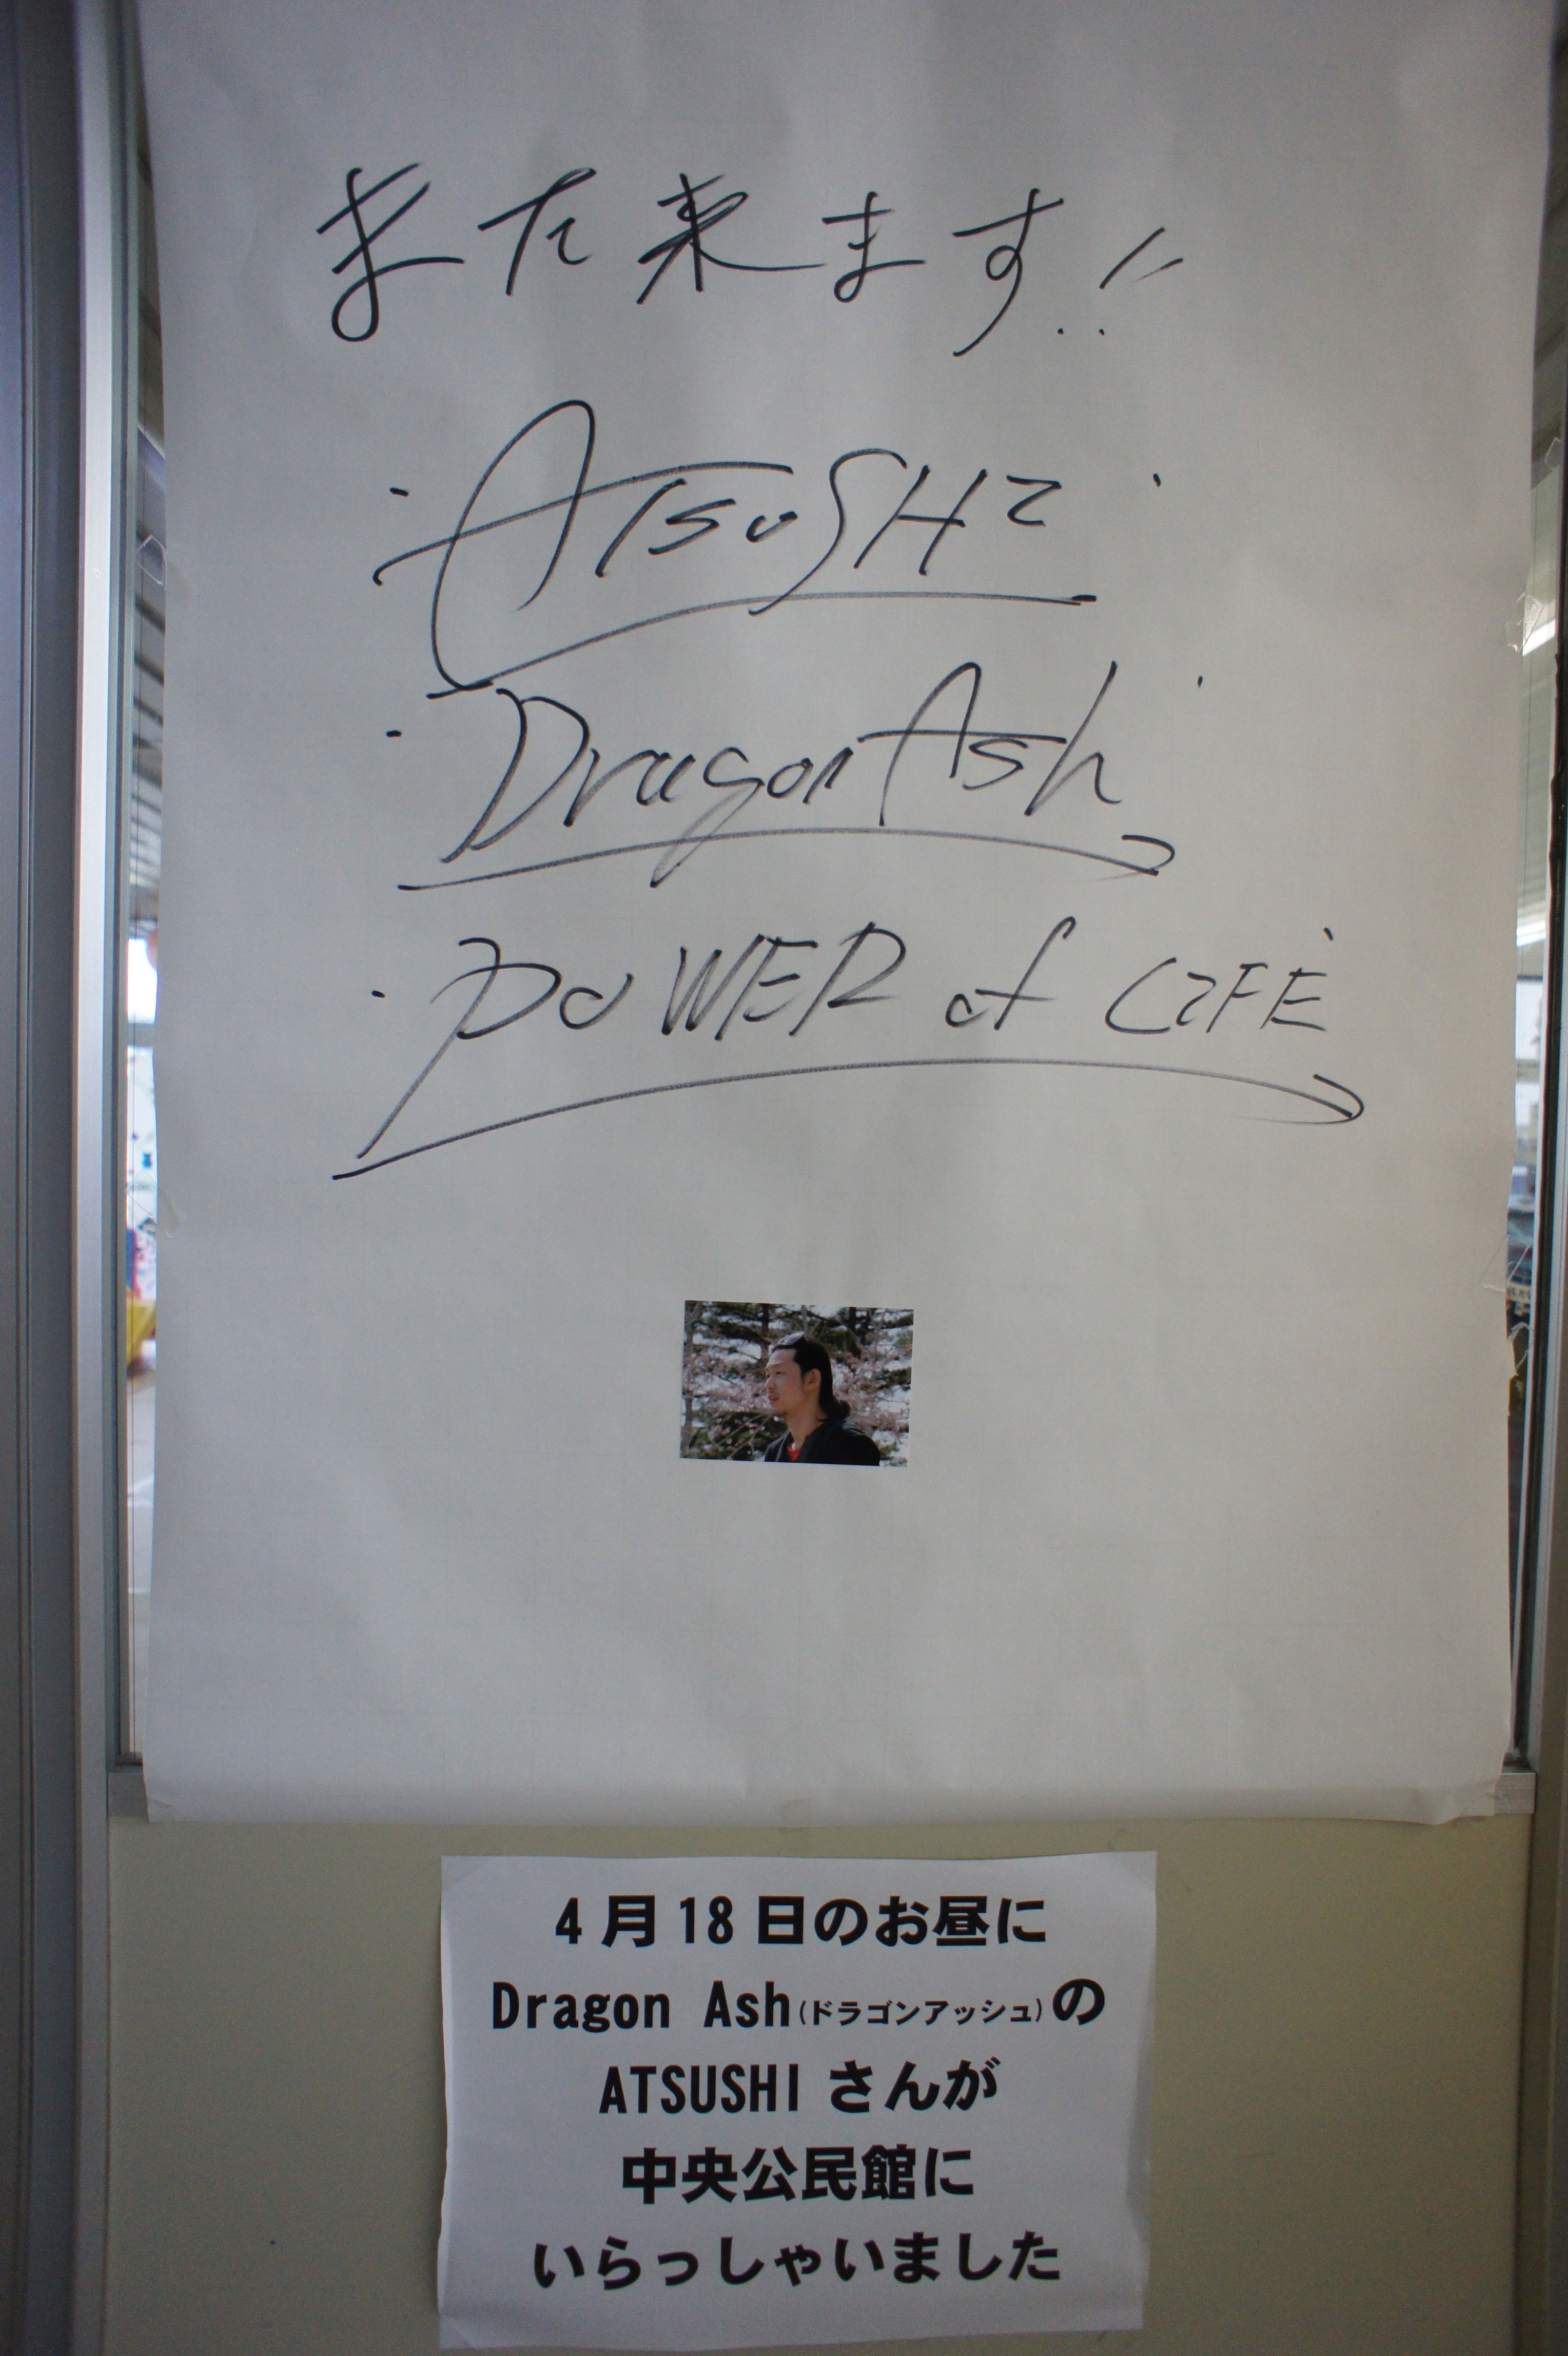 また来ます!!
ATSUSHI
Dragon Ash
POWER of LIFE
4月18日のお昼に
Dragon Ash(ドラゴンアッシュ)の
ATSUSHIさんが
中央公民館に
いらっしゃいました